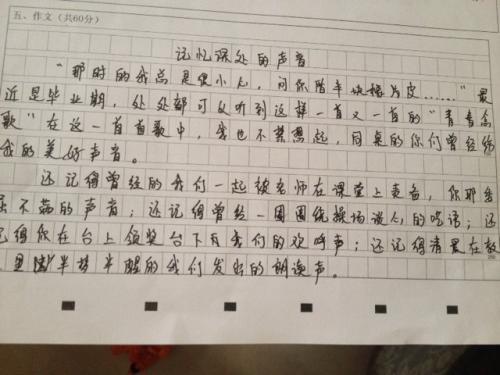 五、作文（共60分）
记忆深处的声音
“那时的我总是很小心，问你借半块橡皮……”最
近是毕业期，处处都可以听到这样一首又一首的“青春
歌”在这一首首歌中，我也不禁想起，同桌的你们曾经给
我的美好声音。
还记得曾经的我们一起被老师在课堂上责备，你那
不满的声音；还记得曾经一圈圈绕操场谈心的吃语；还
记得你在台上领奖台下有我们的欢呼声；还记得清晨在教
里半梦半醒的我们发出的朗读声。